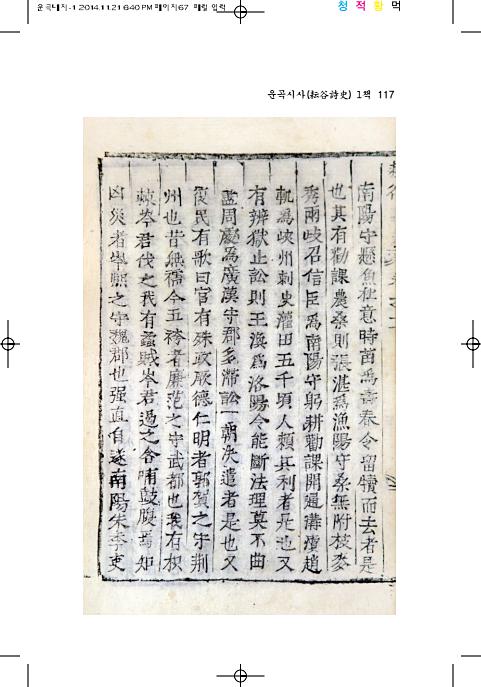 운곡내지-1 2014.11.21 6:40 PM 페이지67 매킬 입력
청 적 황 먹
운곡시사(耘谷詩史) 1책 117
南陽守懸魚杜意時苗爲壽春令留犢而去者是
也其有勸課農桑則張湛爲漁陽守桑無附枝麥
秀兩岐召信臣爲南陽守躬耕勸課開通溝瀆趙
軌爲峽州刺史灌田五千頃人賴其利者是也又
有辨獄止訟則王渙爲洛陽令能斷法理莫不曲
盡周慶爲廣漢守郡多滯訟一朝决遣者是也又
復民有歌曰官有殊政厥德仁明者郭賀之守荆
州也昔無襦今五袴者廉范之守武都也我有枳
棘岑君伐之我有蟊賊岑君過之含哺鼓腹焉知
凶災者岑熙之守魏郡也强直自遂南陽朱季吏